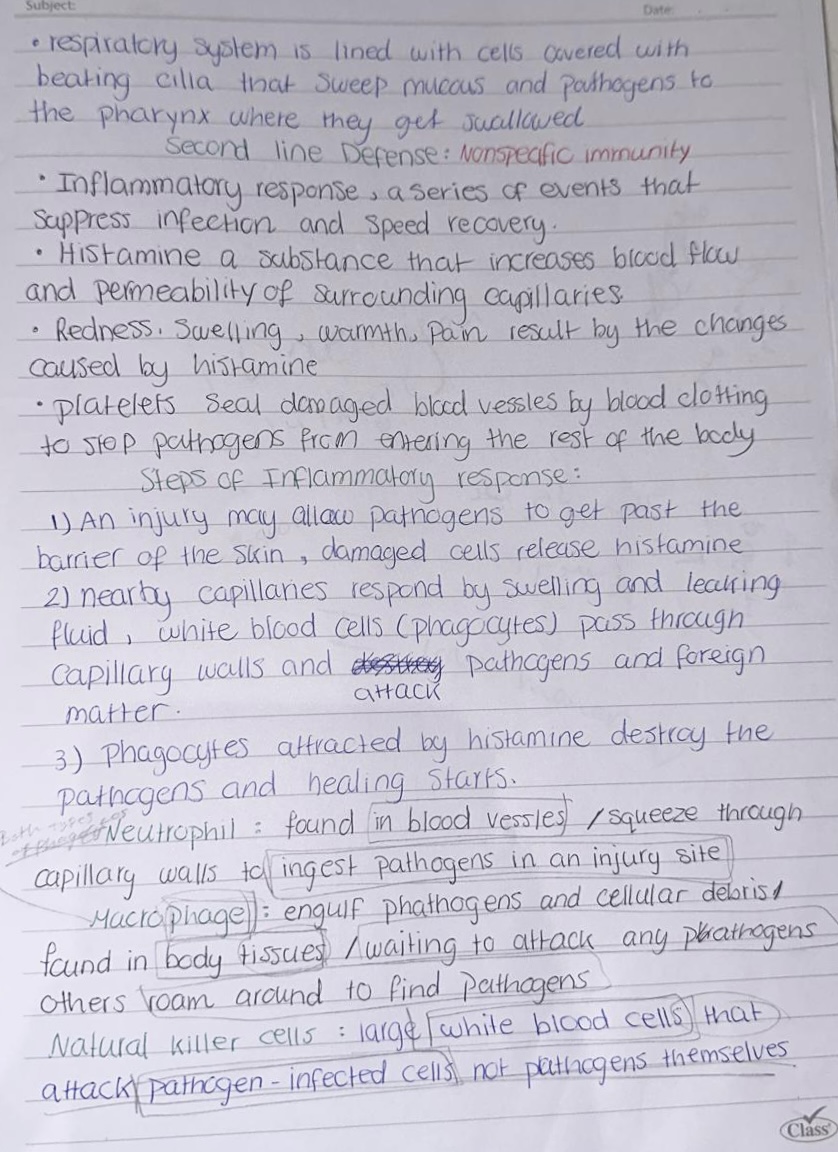 Subject:
Date:
• respiratory system is lined with cells covered with
beating cilia that sweep mucous and pathogens to
the pharynx where they get swallowed
Second line Defense: Nonspecific immunity
• Inflammatory response, a series of events that
suppress infection and speed recovery.
• Histamine a substance that increases blood flow
and permeability of surrounding capillaries
• Redness, swelling, warmth, pain result by the changes
caused by histamine
• platelets seal damaged blood vessles by blood clotting
to stop pathogens from entering the rest of the body
Steps of Inflammatory response:
1) An injury may allow pathogens to get past the
barrier of the skin, damaged cells release histamine
2) nearby capillaries respond by swelling and leaking
fluid, white blood cells (phagocytes) pass through
capillary walls and pathogens and foreign
attack
matter.
3) Phagocytes attracted by histamine destroy the
pathogens and healing starts.
Both types of
Neutrophil: found in blood vessles / squeeze through
capillary walls to ingest pathogens in an injury site
Macrophage: engulf phathogens and cellular debris /
found in body tissues / waiting to attack any phathogens
others roam around to find pathogens
Natural killer cells: large white blood cells that
attack pathogen-infected cells not pathogens themselves
Class